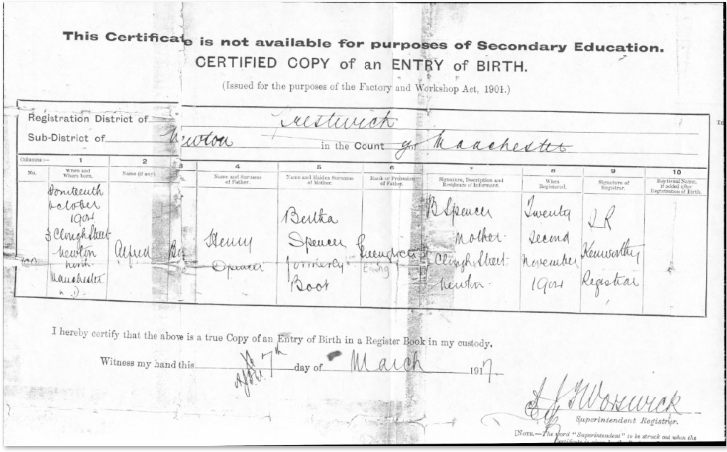 This Certificate is not available for purposes of Secondary Education.
CERTIFIED COPY of an ENTRY of BIRTH.
(Issued for the purposes of the Factory and Workshop Act, 1901.)
Registration District of Prestwich
Sub-District of Newton in the County of Manchester
Columns:— 1 2 3 4 5 6 7 8 9 10
No. When and Where born. Name (if any). Name and Surname of Father. Name and Maiden Surname of Mother. Rank or Profession of Father. Signature, Description and Residence of Informant. When Registered. Signature of Registrar. Baptismal Name, if added after Registration of Birth.
October
1904
3 Clough Street
Newton
North
Manchester
Alfred
Boy
Henry
Spencer
Bertha
Spencer
formerly
Boot
B Spencer
Mother
3 Clough Street
Newton
Twenty
second
November
1904
Kenworthy
Registrar
I hereby certify that the above is a true Copy of an Entry of Birth in a Register Book in my custody.
Witness my hand this 7th day of March 1917
Worswick
Superintendent Registrar.
[Note.—The word "Superintendent" is to be struck out when the